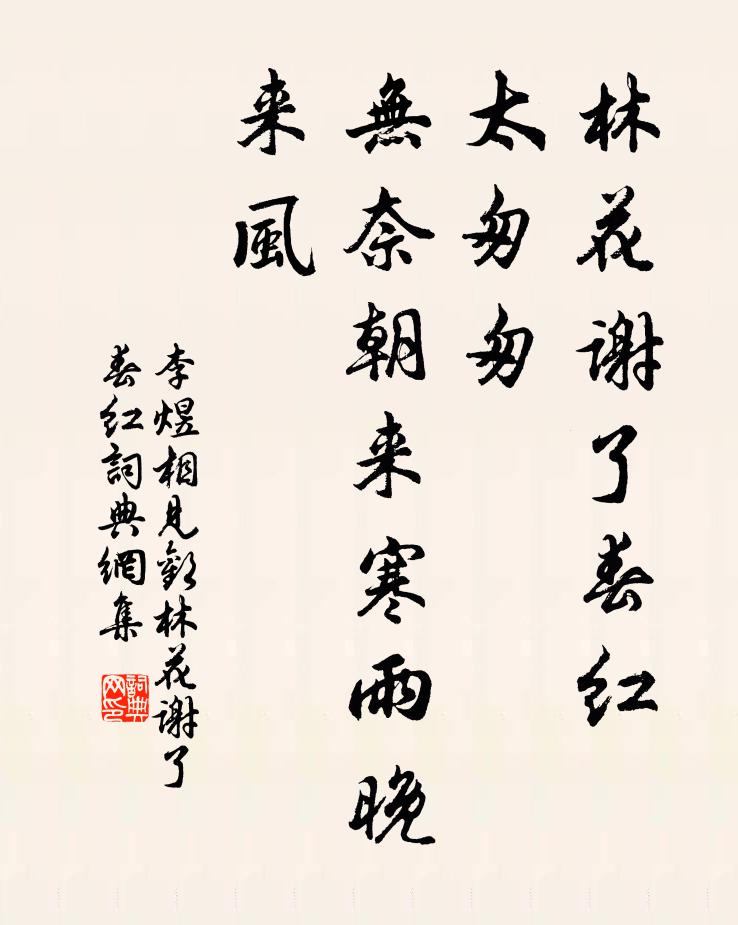 林花謝了春紅
太匆匆
無奈朝来寒雨晚
来風
李煜相見歡林花謝了
春紅詞典網集
詞典网印